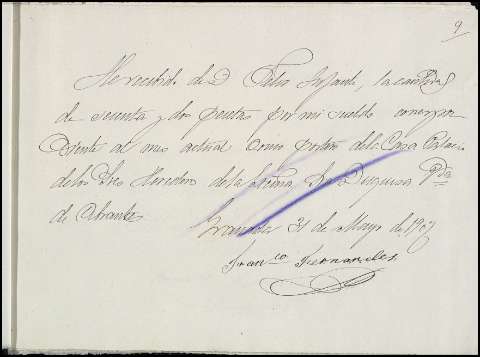 9
He recibido de D. Felix Infante, la cantidad
de sesenta y dos pesetas por mi sueldo correspon
diente de mes actual como portero de la Casa Palacio
de los Sres Herederos de la Exma Sra Duquesa Vda
de Abrantes
Granada 31 de Mayo de 1907
Franco Fernandez